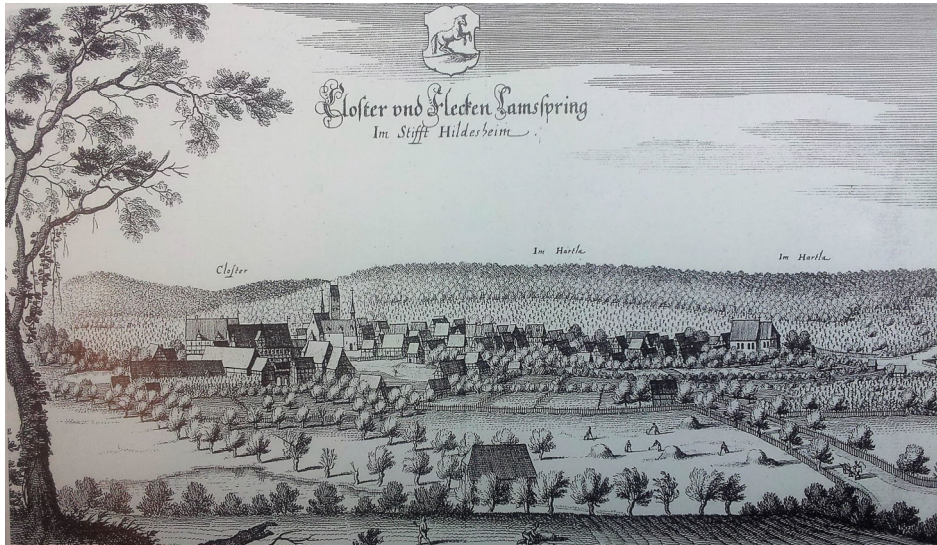 Closter vnd Flecken Lamsspring
Im Stifft Hildesheim.
Closter
Im Hartla
Im Hartla